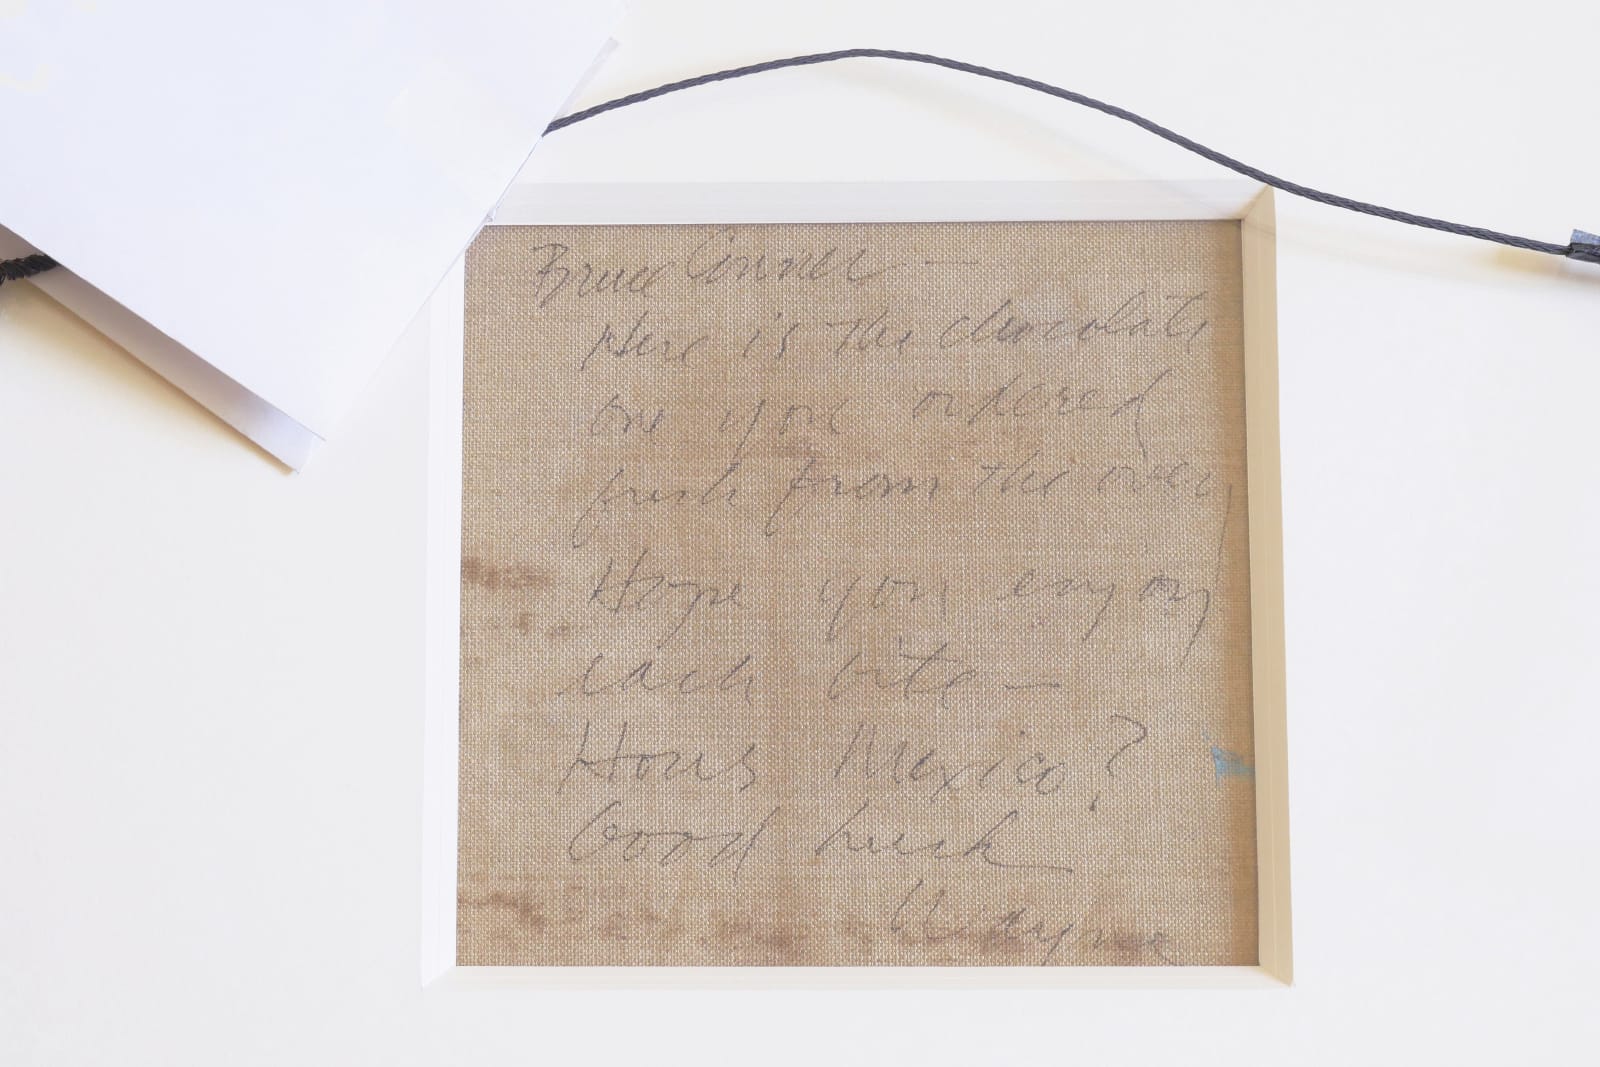 Bruce Conner —
Here is the chocolate
one you ordered
fresh from the oven,
Hope you enjoy
each bite —
Hows Mexico?
Good luck
Wayne